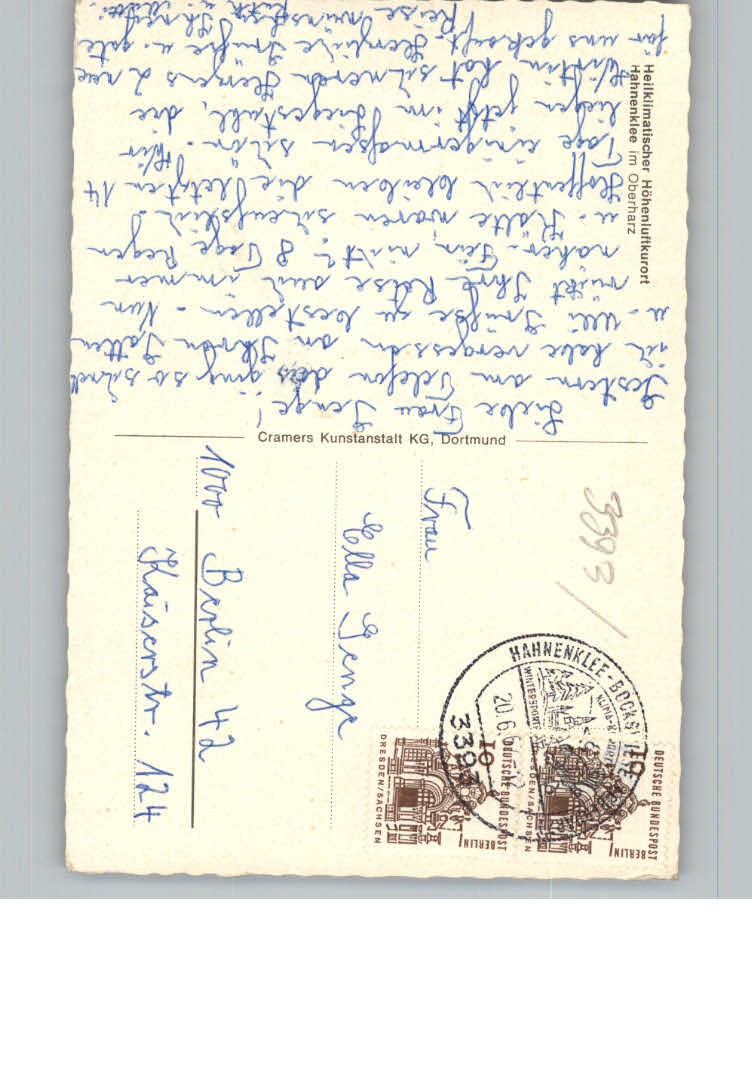 Heilklimatischer Höhenluftkurort
Hahnenklee im Oberharz
Liebe Frau Jenge!
Gestern am Telefon das ging so schnell
ich habe vergessen an Ihren Gatten
u. Ulli Grüße zu bestellen. - Nun
rückt Ihre Reise auch immer
näher. Fein, nicht? 8 Tage Regen
u. Kälte waren scheußlich.
Hoffentlich bleiben die letzten 14
Tage einigermaßen schön. - Wir
liegen jetzt im Liegestuhl, die
Wirtin hat
für uns gekauft. Herzliche Grüße u. gute
Reise wünschen Ihnen
Cramers Kunstanstalt KG, Dortmund
3393/
Frau
Ella Jenge
1000 Berlin 42
Kaiserstr. 124
HAHNENKLEE-BOCKSWIESE
WINTERSPORT
20.6.6
3393
10
DEUTSCHE BUNDESPOST
BERLIN
DRESDEN/SACHSEN
10
DEUTSCHE BUNDESPOST
BERLIN
DRESDEN/SACHSEN